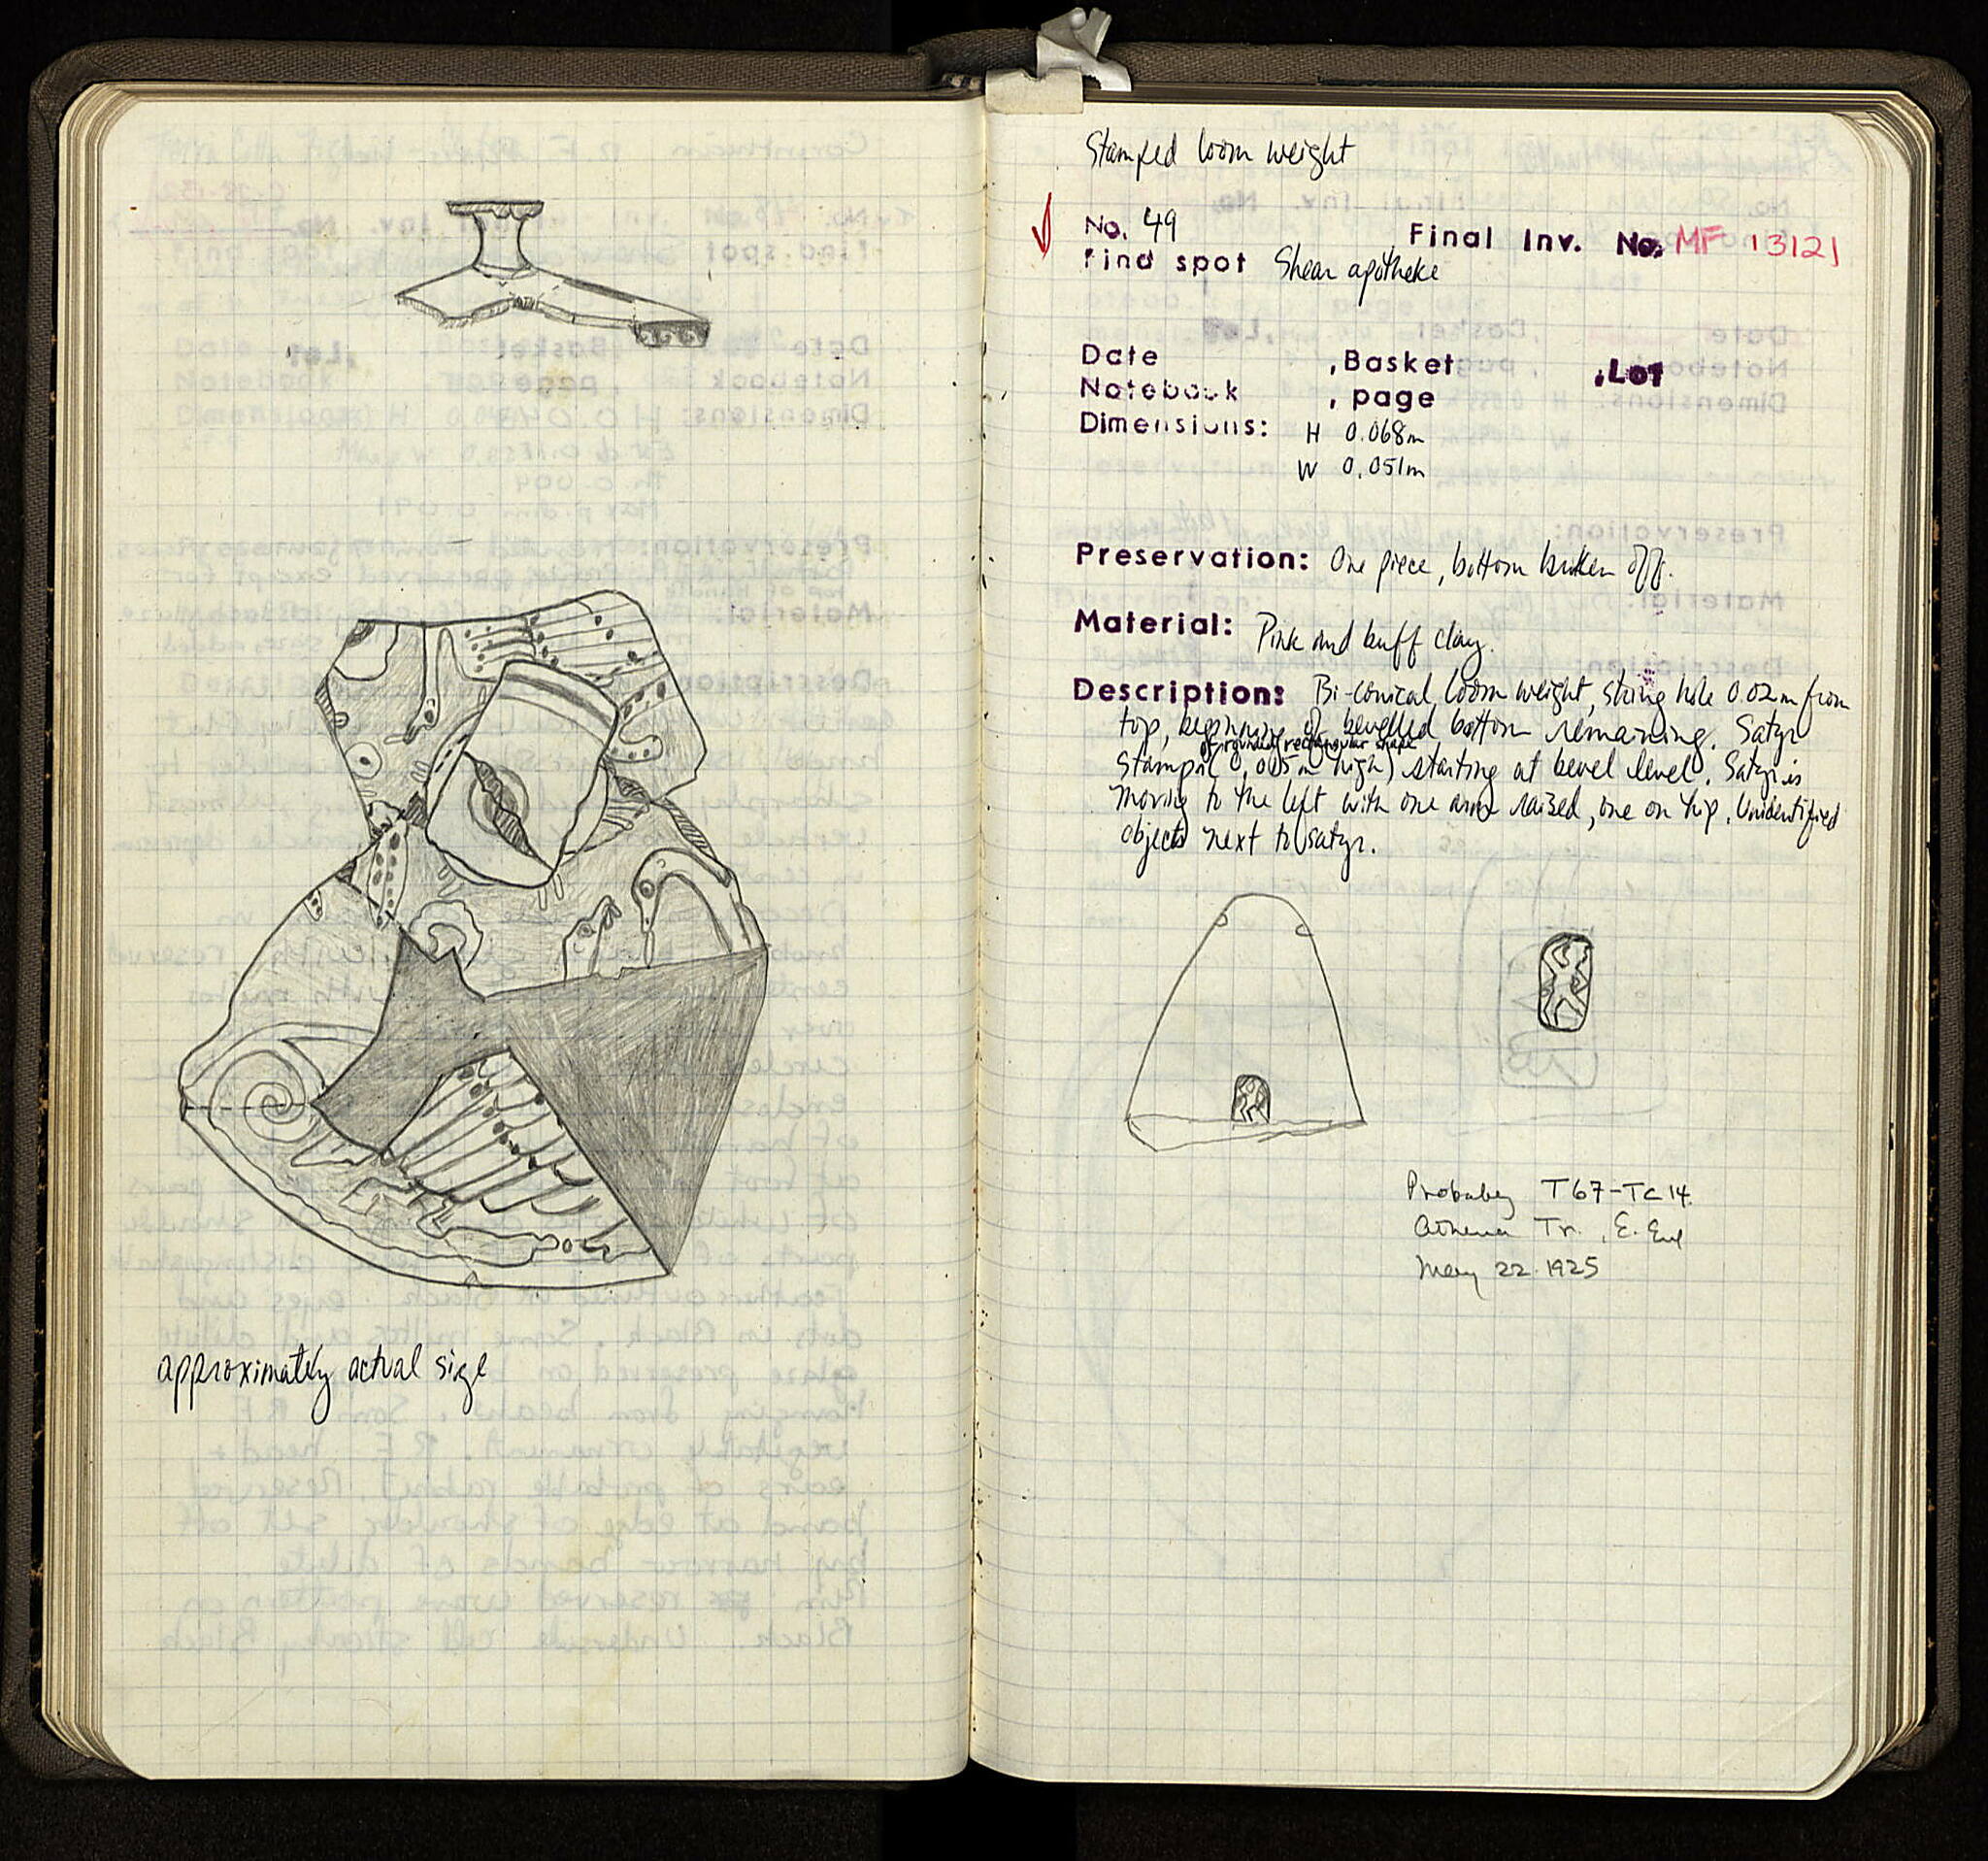 approximately actual size
Stamped loom weight
No. 49 Final Inv. No. MF 13121
Find spot Shear apotheke
Date , Basket , Lot
Notebook , page
Dimensions: H 0.068m
W 0.051m
Preservation: One piece, bottom broken off.
Material: Pink and buff clay.
Description: Bi-conical loom weight, string hole 0.02m from
top, beginning of bevelled bottom remaining. Satyr
of rounded rectangular shape
stamp ( 0.015m high) starting at bevel level. Satyr is
moving to the left with one arm raised, one on hip. Unidentified
objects next to satyr.
Probably T67-TC14.
Athena Tr., E. End
May 22. 1925